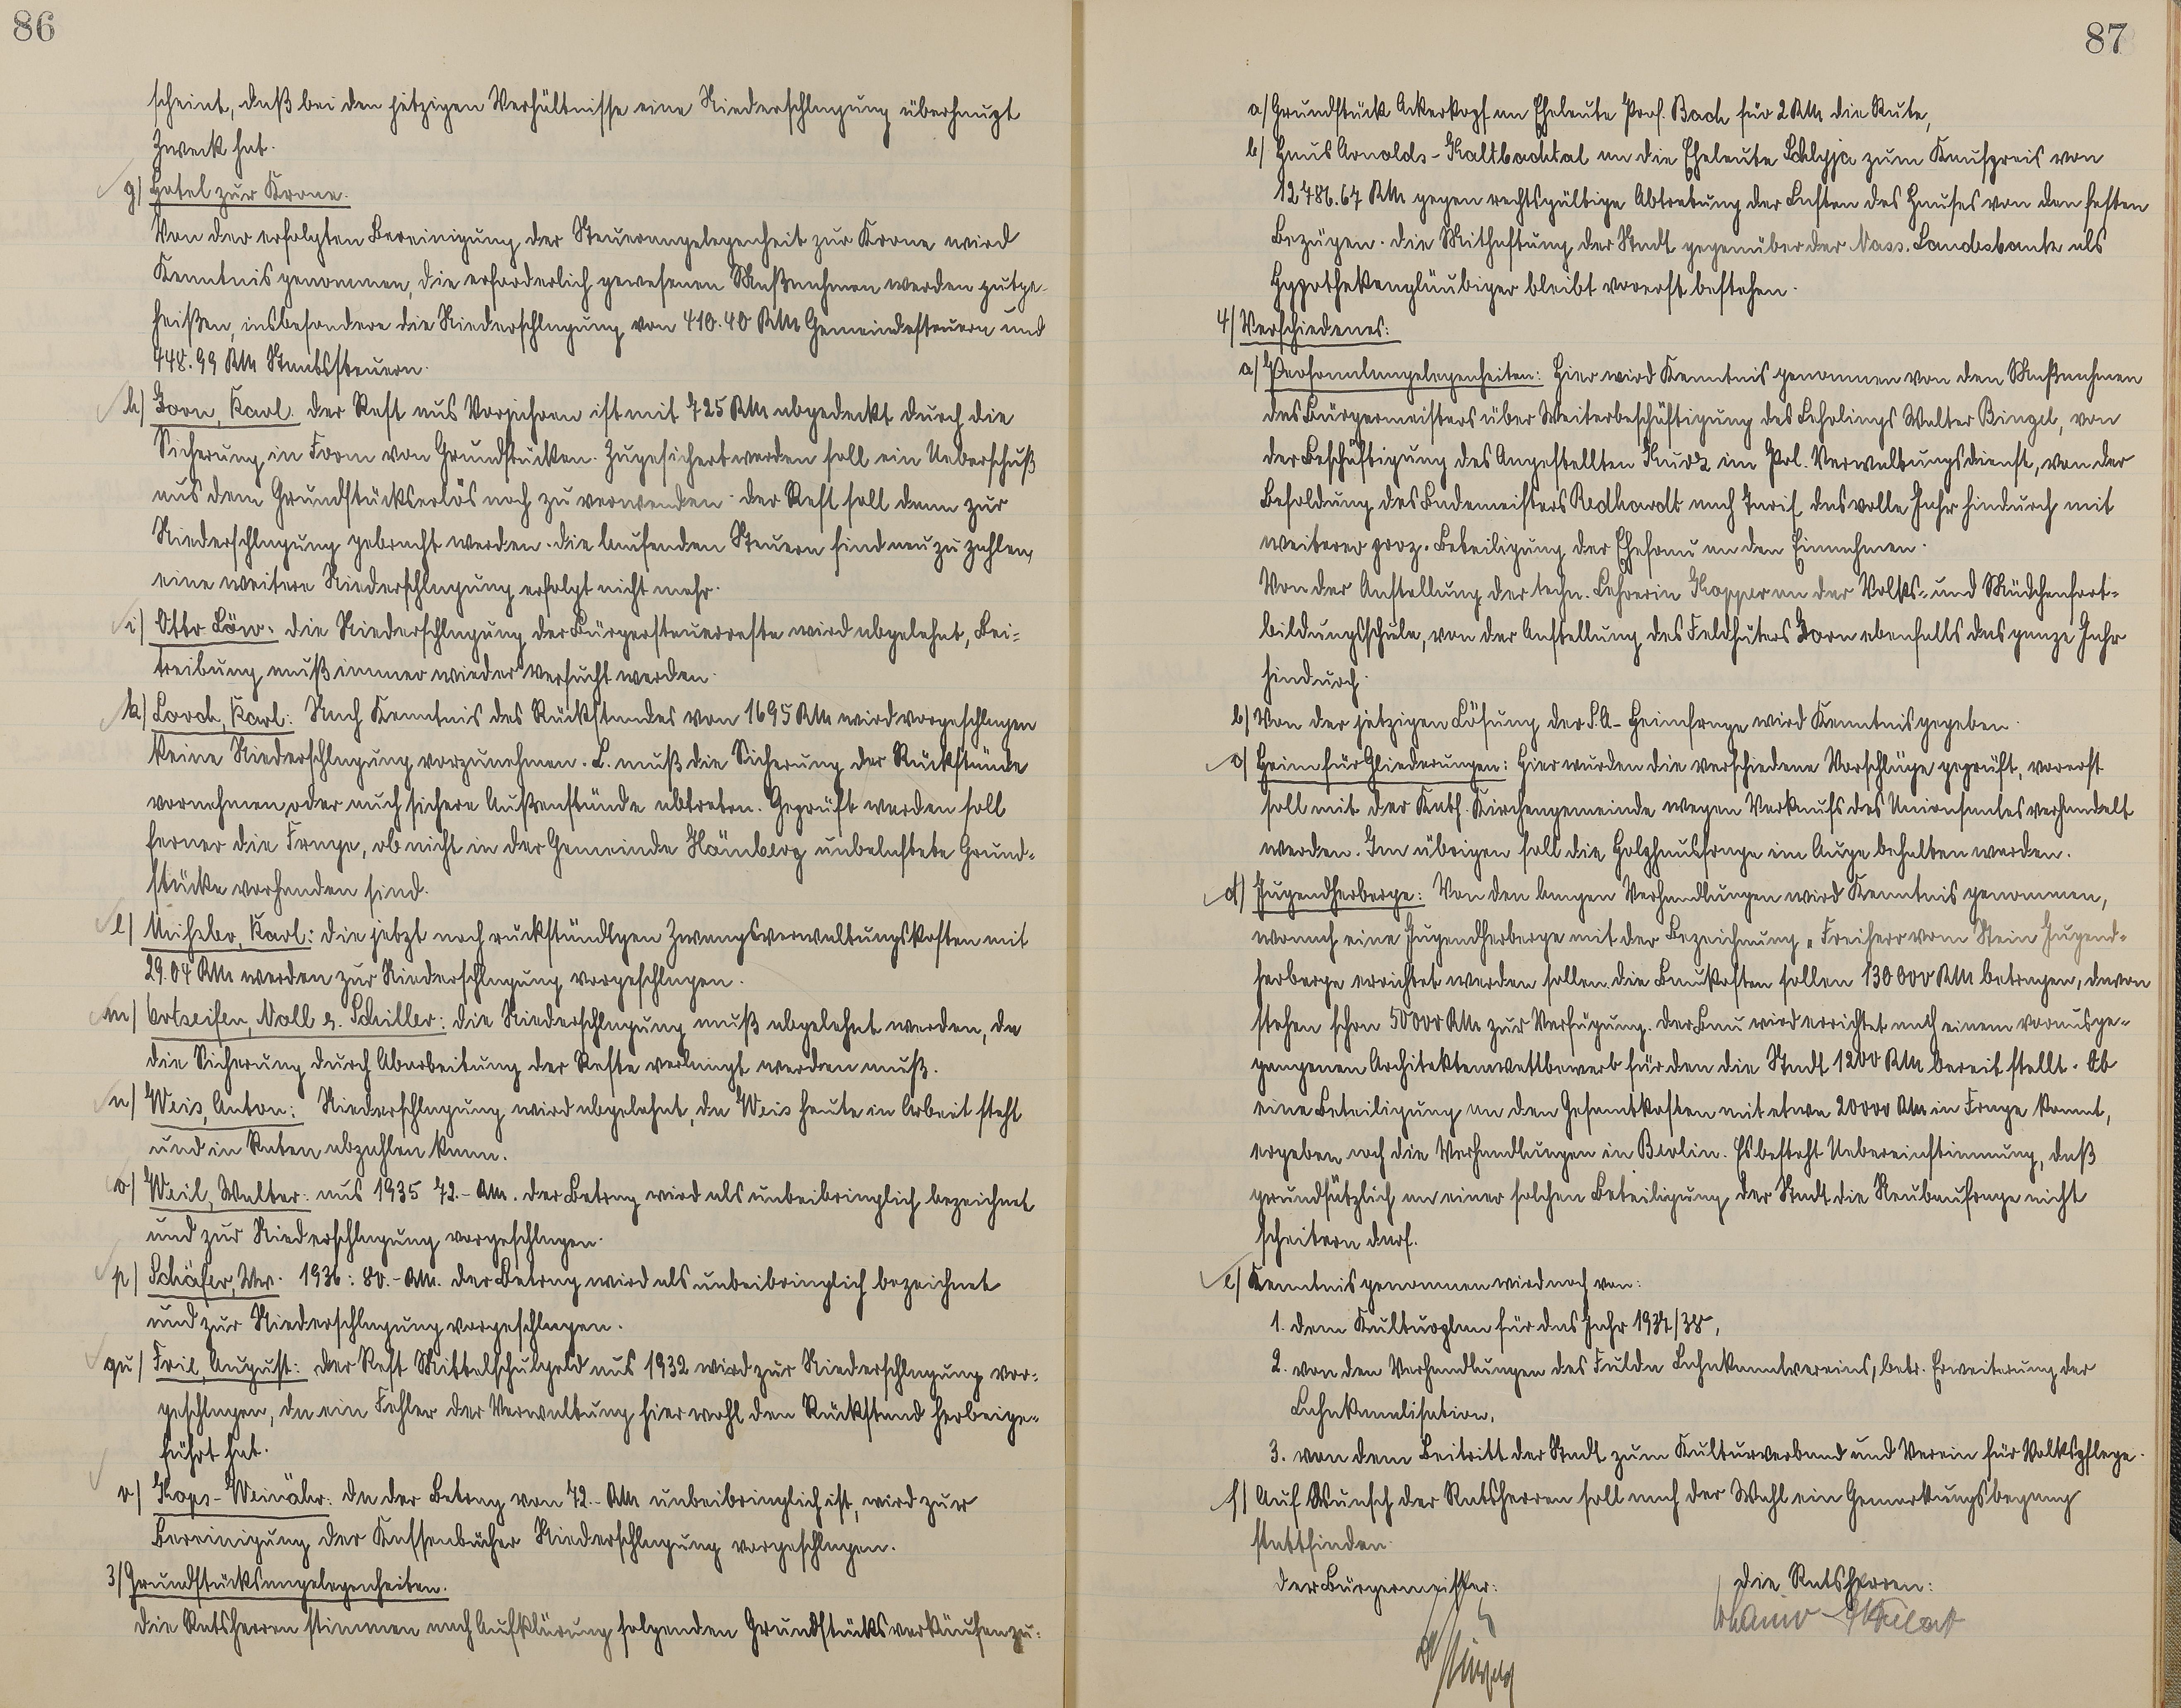 86
scheint, daß bei den jetzigen Verhältnisse eine Niederschlagung überhaupt
Zweck hat.
g) Hotel zur Krone.
Von der erfolgten Bereinigung der Steuerangelegenheit zur Krone wird
Kenntnis genommen, die erforderlich gewesenen Maßnahmen werden gutge-
heißen, insbesondere die Niederschlagung von 410.40 RM Gemeindesteuern und
448.99 RM Staatssteuern.
h) Zorn, Karl. der Rest aus Vorjahren ist mit 725 RM abgedeckt durch die
Sicherung in Form von Grundstücken. Zugesichert werden soll ein Ueberschuß
aus dem Grundstückserlös noch zu verwenden. der Rest soll dann zur
Niederschlagung gebracht werden. die laufenden Steuern sind neu zu zahlen,
eine weitere Niederschlagung erfolgt nicht mehr.
i) Otto Löw. die Niederschlagung der Bürgersteuerreste wird abgelehnt, Bei-
treibung muß immer wieder versucht werden.
k) Lorch, Karl: Nach Kenntnis des Rückstandes von 1695 RM wird vorgeschlagen
keine Niederschlagung vorzunehmen. L. muß die Sicherung der Rückstände
vornehmen oder auch sichere Außenstände abtreten. Geprüft werden soll
ferner die Frage, ob nicht in der Gemeinde Hömberg unbelastete Grund-
stücke vorhanden sind.
l) Karl: die jetzt noch rückständigen Zwangsverwaltungskosten mit
29.04 RM werden zur Niederschlagung vorgeschlagen.
m) Ortseifen, Noll u. Schiller: die Niederschlagung muß abgelehnt werden, da
die Sicherung durch Abarbeitung der Reste verlangt werden muß.
n) Weis, Anton: Niederschlagung wird abgelehnt, da Weis heute in Arbeit steht
und in Raten abzahlen kann.
o) Weil, Walter: aus 1935 72.- RM. der Betrag wird als unbeibringlich bezeichnet
und zur Niederschlagung vorgeschlagen.
p) Schäfer, Ww. 1936: 80.- RM. der Betrag wird als unbeibringlich bezeichnet
und zur Niederschlagung vorgeschlagen.
qu) Freil, August: der Rest Mittelschulgeld aus 1932 wird zur Niederschlagung vor-
geschlagen, da ein Fehler der Verwaltung hier wohl den Rückstand herbeige-
führt hat.
r) Kops-Weinähr: da der Betrag von 72.- RM unbeibringlich ist, wird zur
Bereinigung der Kassenbücher Niederschlagung vorgeschlagen.
3) Grundstücksangelegenheiten.
die Ratsherren stimmen nach Aufklärung folgenden Grundstücksverkäufen zu:
87
a) Grundstück Ackerkopf an Eheleute Prof. Bach für 2 RM die Rute,
b) Haus Arnolds-Kaltbachtal an die Eheleute Schlyja zum Kaufpreis von
12786.67 RM gegen rechtsgültige Abtretung der Lasten des Hauses von den festen
Bezügen. die Mithaftung der Stadt gegenüber der Nass. Landesbank als
Hypothekengläubiger bleibt vorerst bestehen.
4) Verschiedenes:
a) Personalangelegenheiten: Hier wird Kenntnis genommen von den Maßnahmen
des Bürgermeisters über Weiterbeschäftigung des Lehrlings Walter Bingel, von
der Beschäftigung des Angestellten Kurz im Pol. Verwaltungsdienst, von der
Besoldung des Bademeisters Redhardt nach Tarif das volle Jahr hindurch mit
weiterer proz. Beteiligung der Ehefrau an den Einnahmen.
Von der Anstellung der techn. Lehrerin Kopper an der Volks- und Mädchenfort-
bildungsschule, von der Anstellung des Feldhüters Zorn ebenfalls das ganze Jahr
hindurch.
b) Von der jetzigen Lösung der S.A-Heimfrage wird Kenntnis gegeben.
c) Heim für Gliederungen: Hier wurden die verschiedene Vorschläge geprüft, vorerst
soll mit der Kath. Kirchengemeinde wegen Verkaufs des Unionsaales verhandelt
werden. Im übrigen soll die Holzhausfrage im Auge behalten werden.
d) Jugendherberge: Von den langen Verhandlungen wird Kenntnis genommen,
wonach eine Jugendherberge mit der Bezeichnung „Freiherr vom Stein Jugend-
herberge errichtet werden sollen. die Baukosten sollen 130000 RM betragen, davon
stehen schon 50000 RM zur Verfügung. der Bau wird errichtet nach einem vorausge-
gangenen Architektenwettbewerb für den die Stadt 1200 RM bereit stellt. Ob
eine Beteiligung an den Gesamtkosten mit etwa 20000 RM in Frage kommt,
ergeben noch die Verhandlungen in Berlin. Es besteht Uebereinstimmung, daß
grundsätzlich an einer solchen Beteiligung der Stadt die Neubaufrage nicht
scheitern darf.
e) Kenntnis genommen wird noch von:
1. dem Kulturplan für das Jahr 1937/38,
2. von den Verhandlungen des Fulda Lahnkanalvereins, betr. Erweiterung der
Lahnkanalisation,
3. von dem Beitritt der Stadt zum Kulturverband und Verein für Volkspflege.
f) Auf Wunsch der Ratsherren soll nach der Wahl ein Gemarkungsbegang
stattfinden.
der Bürgermeister:
die Ratsherren: